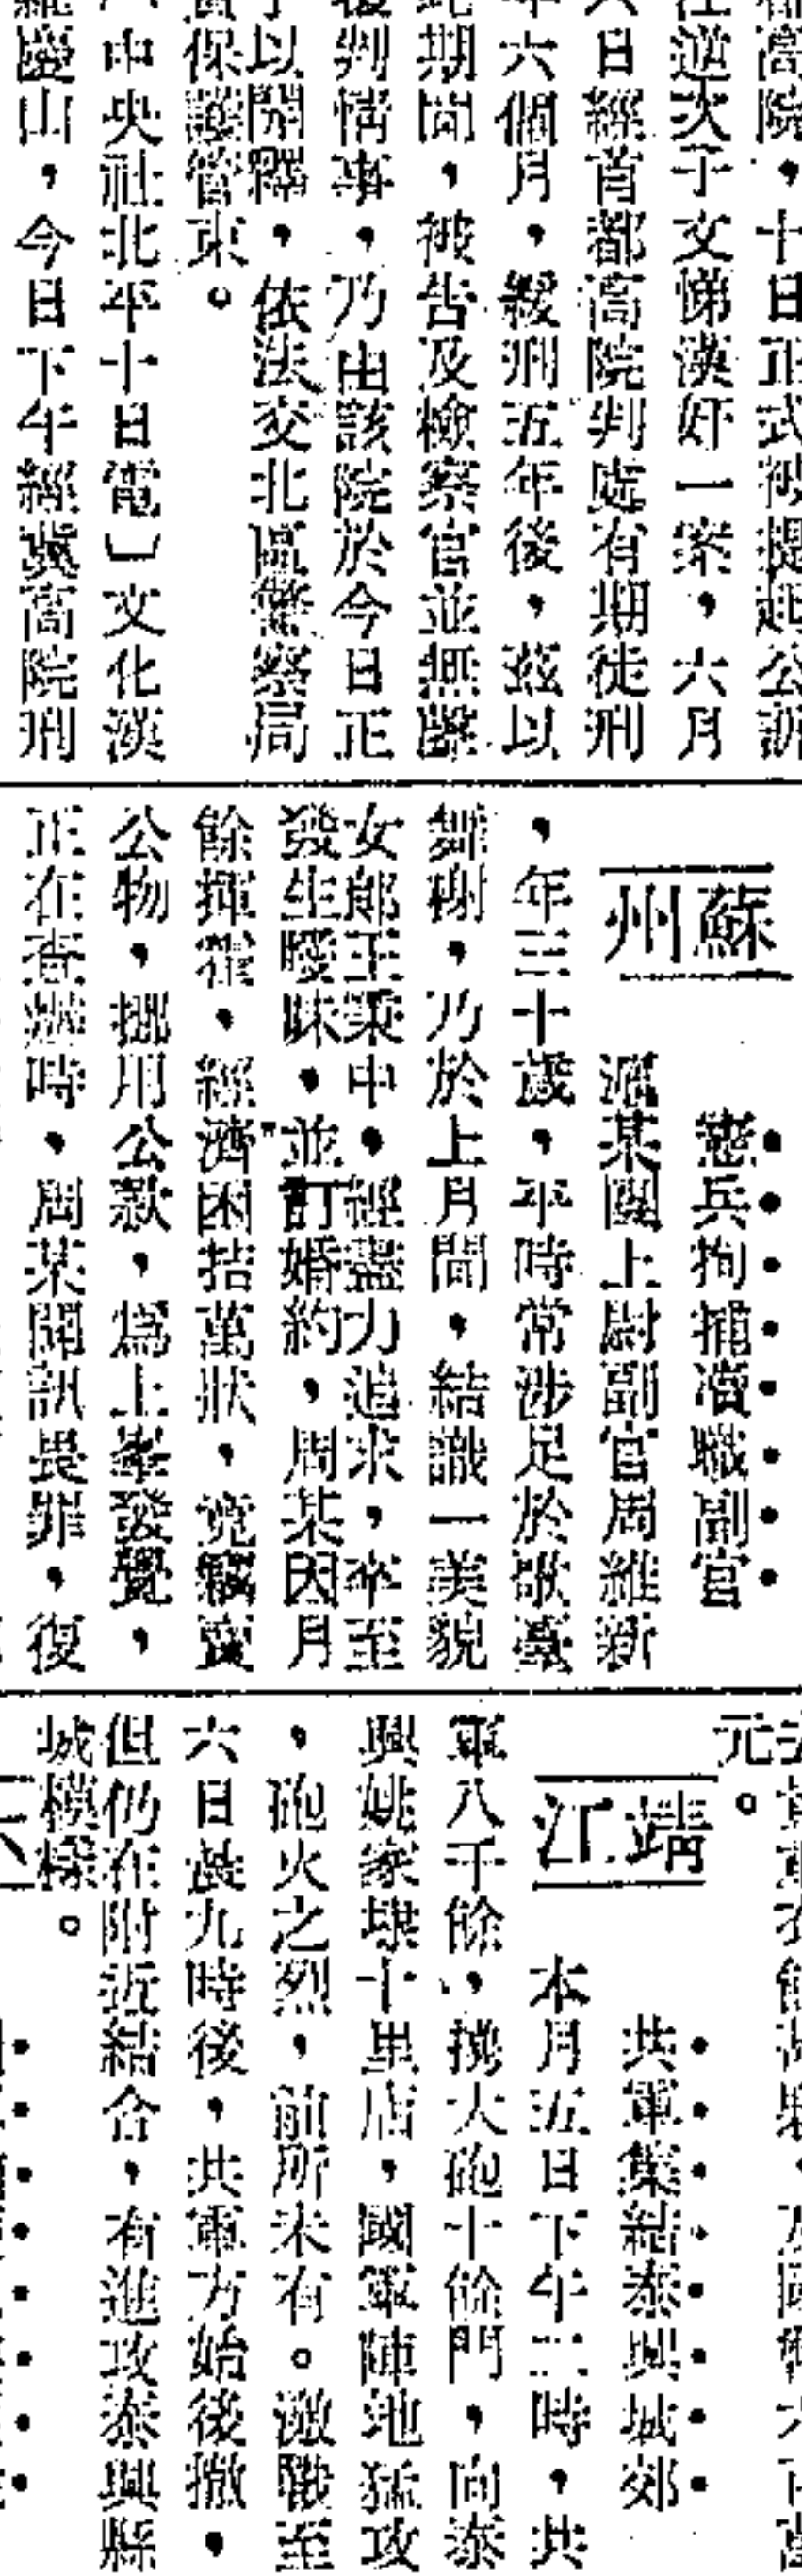 都高院，十日正式被提起公訴
汪逆次子文悌漢奸一案，六月
六日經首都高院判處有期徒刑
年六個月，緩刑五年後，茲以
此期間，被告及檢察官並無聲
復判情事，乃由該院於今日正
予以開釋，依法交北區警察局
保護管束。
中央社北平十日電〕文化漢
慶山，今日下午經冀高院刑
蘇州
憲兵拘捕瀆職副官
某團上尉副官周維新
，年三十歲，平時常涉足於歌臺
舞榭，乃於上月間，結識一美貌
女郎王秉中，經盡力追求，卒至
發生曖昧，並訂婚約，周某因月
餘揮霍，經濟困拮萬狀，竟竊賣
公物，挪用公款，爲上峯發覺，
正在查辦時，周某聞訊畏罪，復
元。
靖江
共軍集結泰興城郊
本月五日下午二時，共
軍八千餘，携大砲十餘門，向泰
興姚家埭十里店，國軍陣地猛攻
，砲火之烈，前所未有。激戰至
六日晨九時後，共軍方始後撤，
但仍在附近結合，有進攻泰興縣
城模樣。